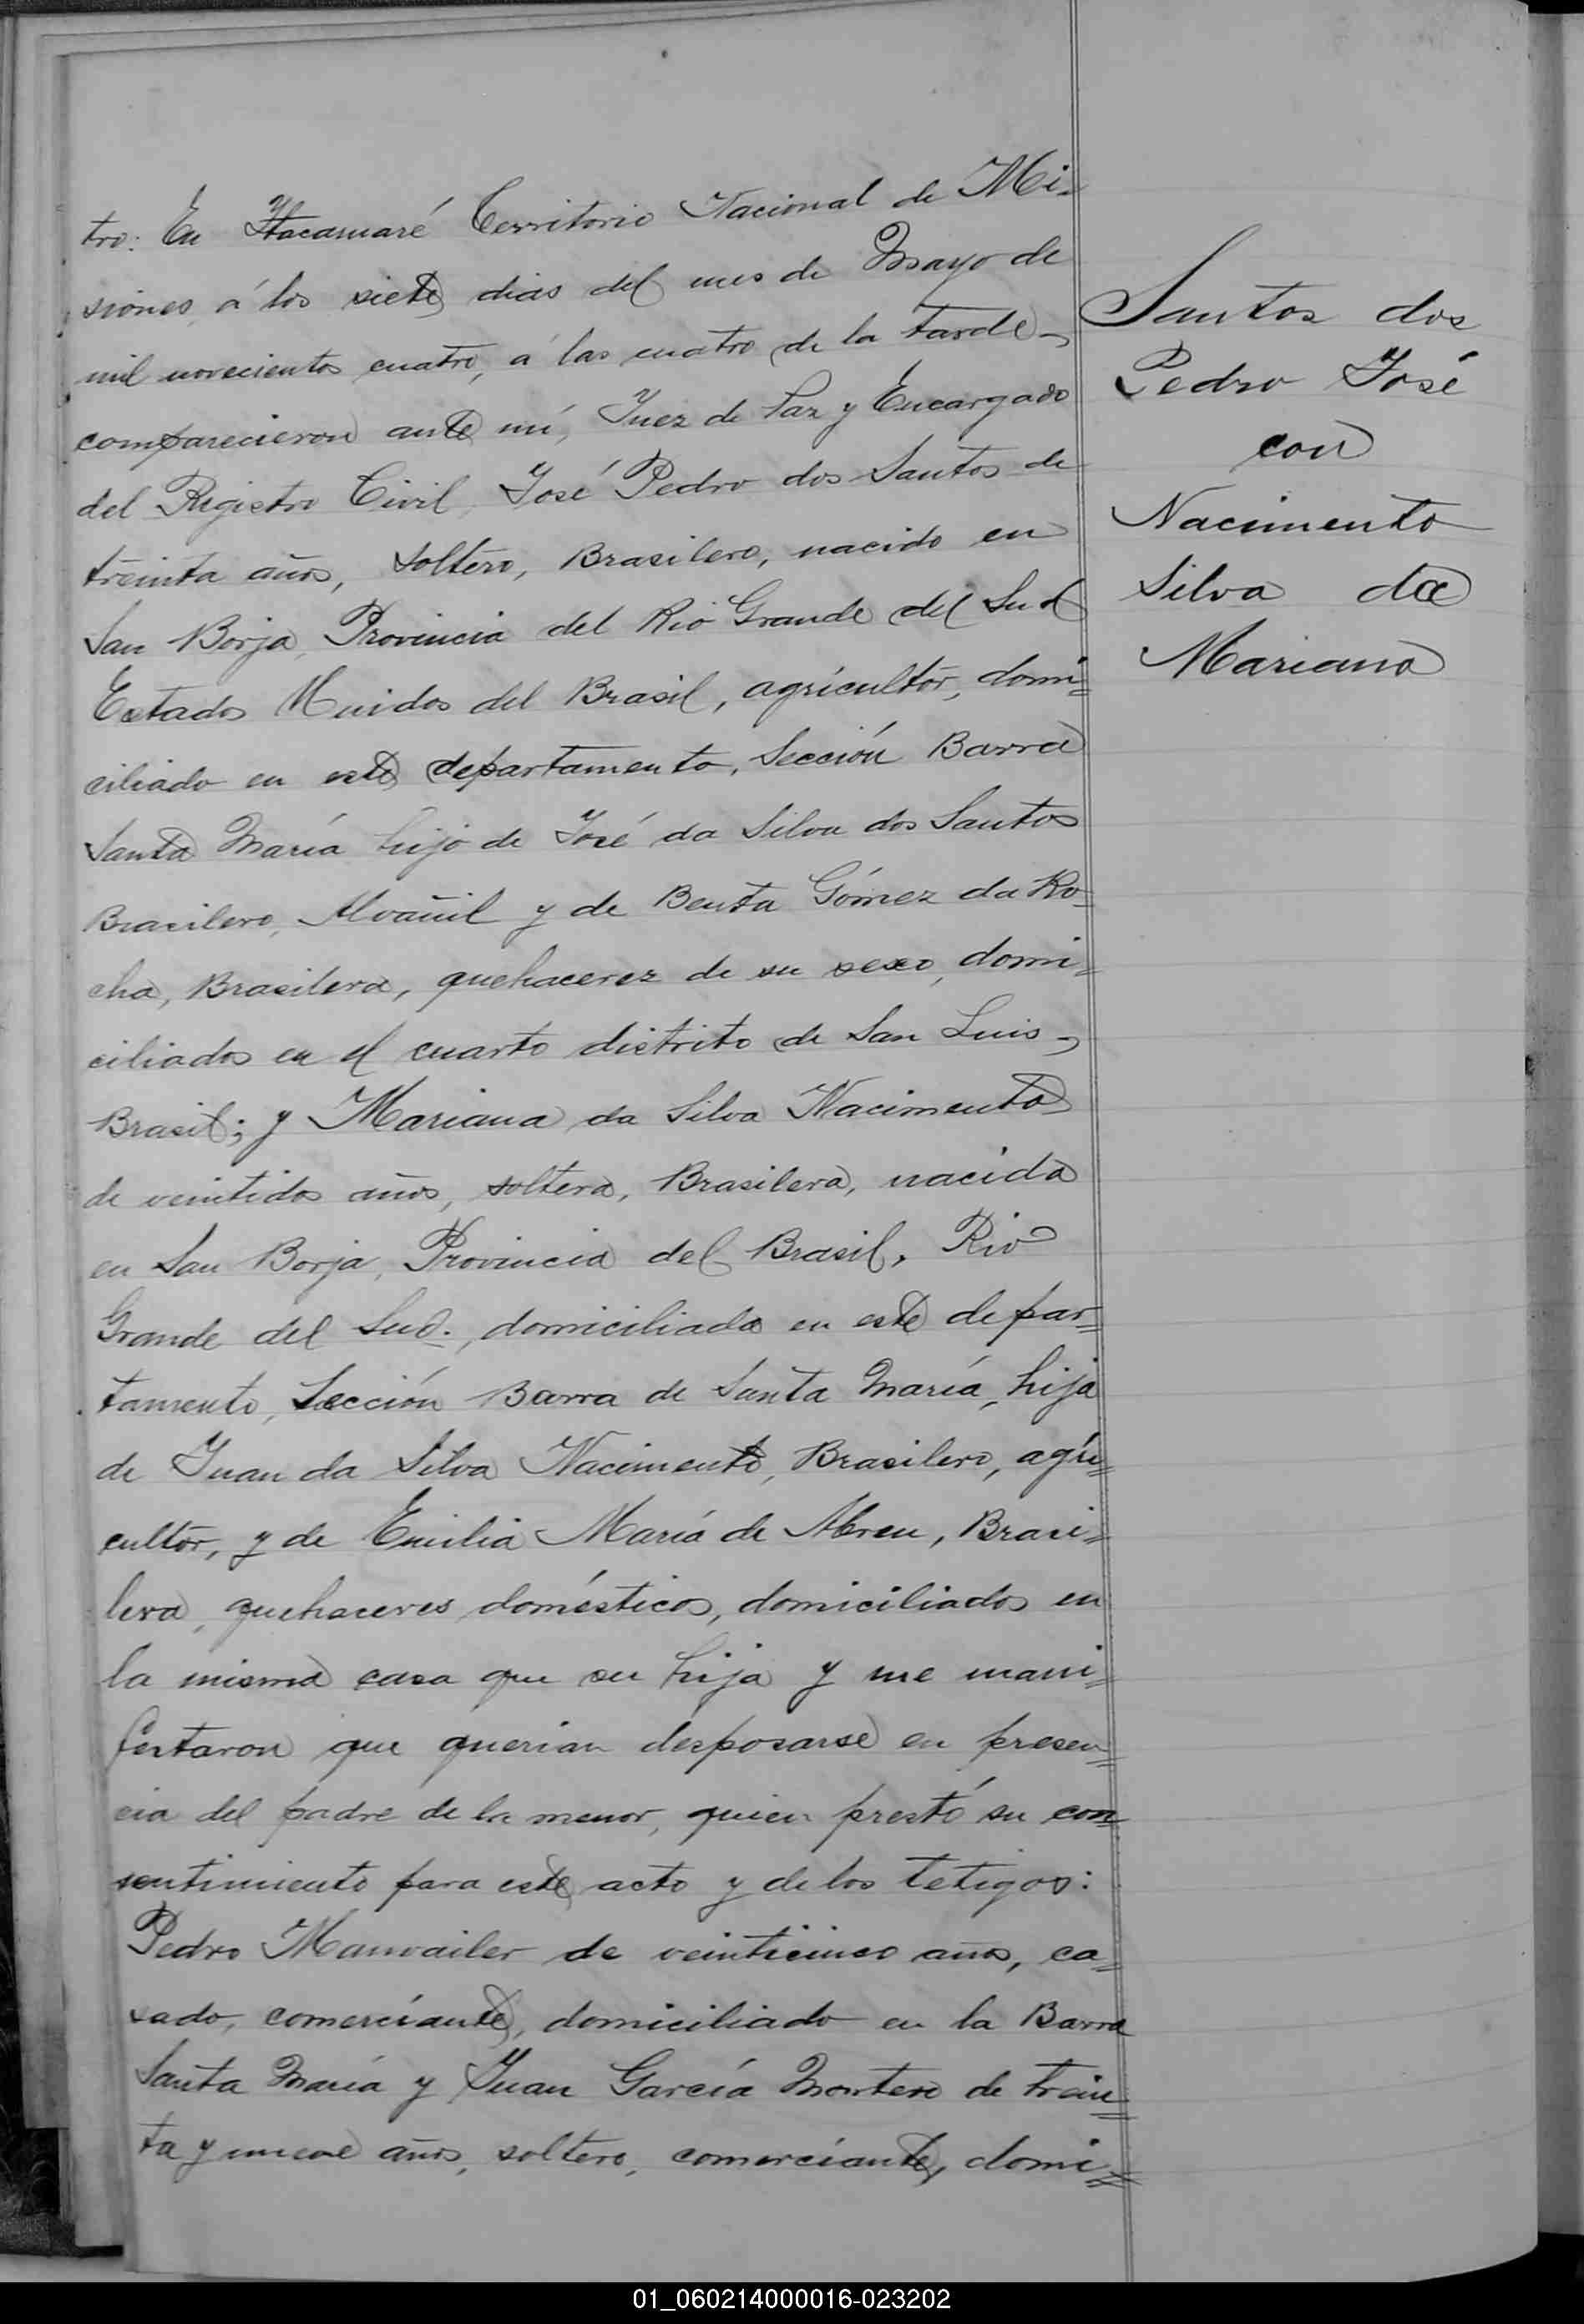 tro: En Itacamaré Territorio Nacional de Mi-
siones, á los siete dias del mes de Mayo de
mil novecientos cuatro, á las cuatro de la tarde
comparecieron ante mí, Juez de Paz y Encargado
del Registro Civil, José Pedro dos Santos de
treinta años, soltero, Brasilero, nacido en
San Borja, Provincia del Rio Grande del Sud
Estados Unidos del Brasil, agricultor, domi=
ciliado en este departamento, Sección Barra
Santa María hijo de José da Silva dos Santos
Brasilero, Alvañil y de Benta Gómez da Ro-
cha, Brasilera, quehacerez de su sexo, domi=
ciliados en el cuarto distrito de San Luis,
Brasil; y Mariana da Silva Nacimento
de veintidos años, soltera, Brasilera, nacida
en San Borja, Provincia del Brasil, Rio
Grande del Sud., domiciliada en este depar=
tamento, Sección Barra de Santa María, hija
de Juan da Silva Nacimento, Brasilero, agri=
cultor, y de Emilia María de Abreu, Brasi=
lera, quehaceres domésticos, domiciliados en
la misma casa que su hija y me mani=
festaron que querian desposarse en presen=
cia del padre de la menor, quien prestó su con=
sentimiento para este acto y de los tetigos:
Pedro Manvailer de veinticinco años, ca=
sado, comerciante, domiciliado en la Barra
Santa María y Juan García Montero de trein=
ta y nueve años, soltero, comerciante, domi=
Santos dos
Pedro José
con
Nacimento
Silva da
Mariana
01_060214000016-023202